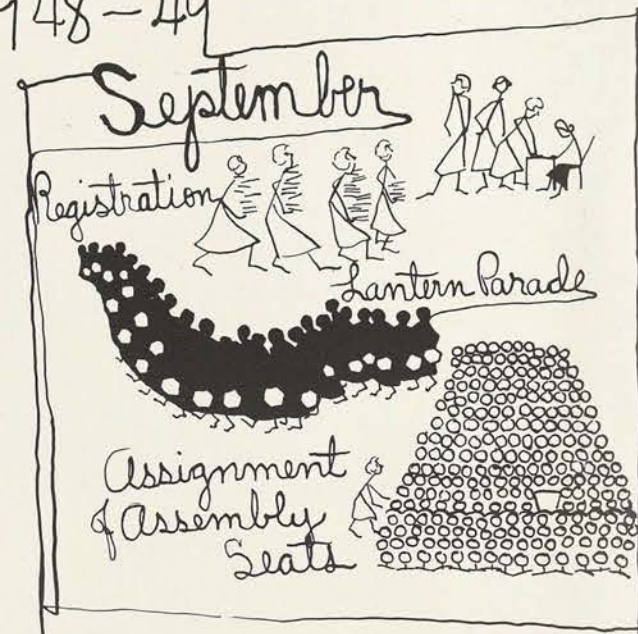 948-49
September
Registration
Lantern Parade
Assignment
of Assembly
Seats